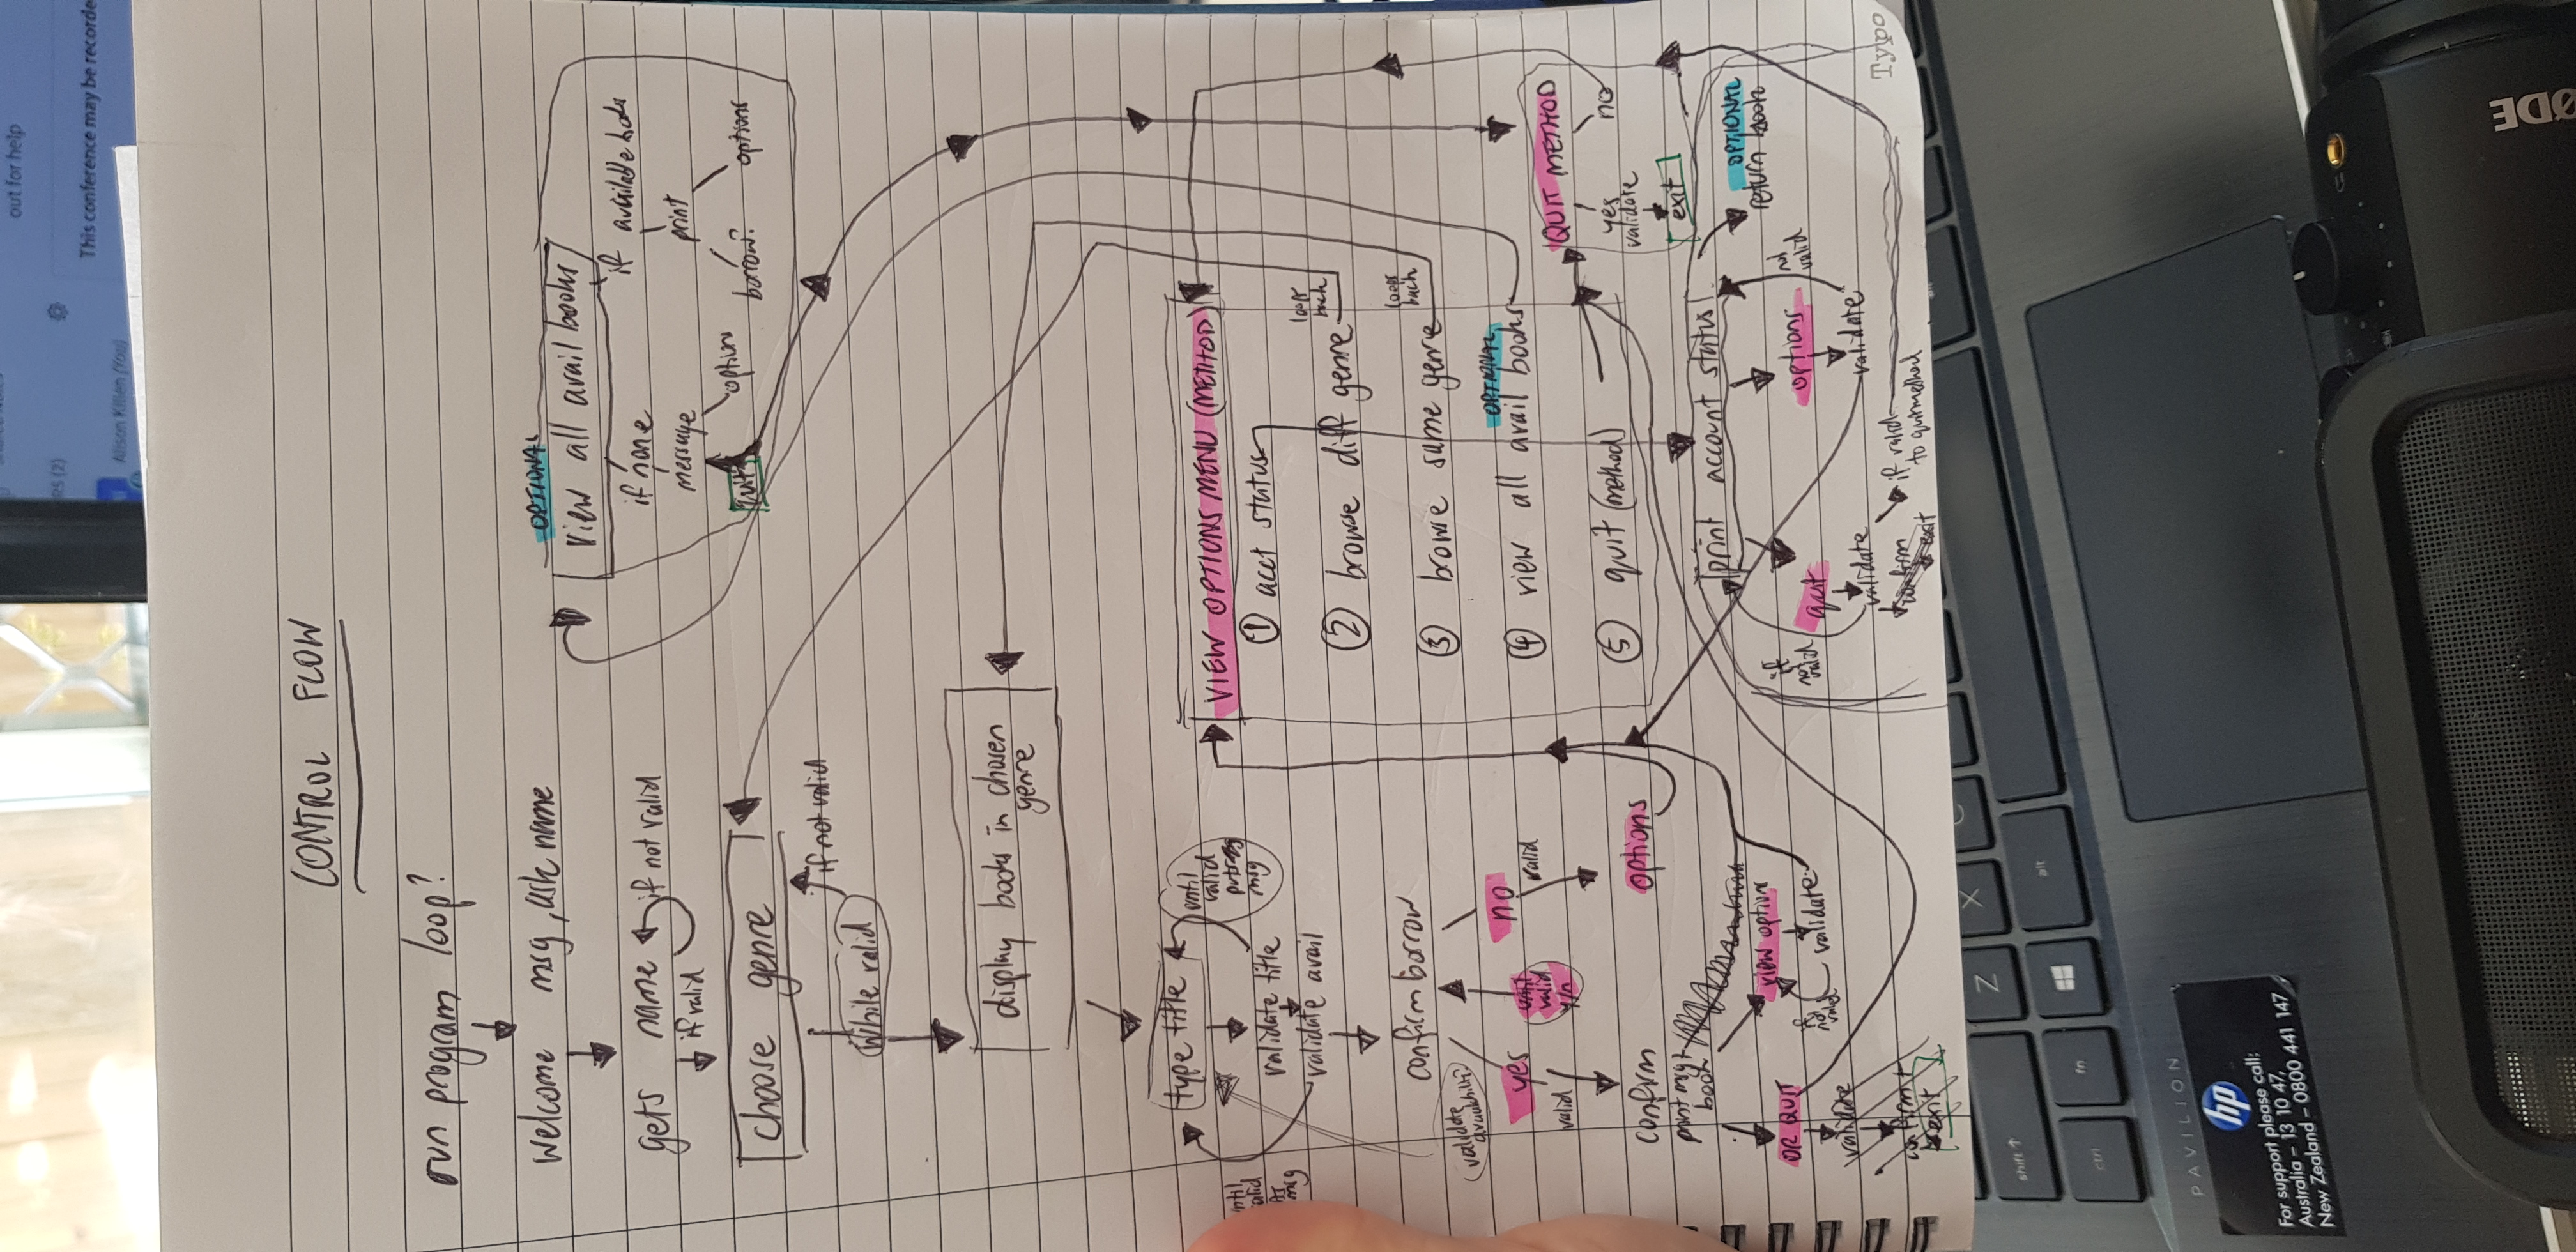 out for help
RS (2)
This conference may be recorde
Alison Killen (You)
CONTROL FLOW
run program loop?
Welcome msg, ask name
gets name if not valid
if valid
choose genre
if not valid
While valid
display books in chosen
genre
type title
until
valid
puts
msg
validate title
validate avail
confirm borrow
validate
availability
yes
until
valid
y/n
no
valid
valid
confirm
print msg +
book
options
OR QUIT
view options
if
not
valid
validate
validate
confirm +
exit
OPTIONAL
view all avail books
if none
if available books
message
print
quit
options
borrow?
options
VIEW OPTIONS MENU (METHOD)
① acct status
② browse diff genre
loops
back
③ browse same genre
loops
back
OPTIONAL
④ view all avail books
⑤ quit (method)
QUIT METHOD
yes
no
validate
exit
print account status
OPTIONAL
return book
if
not
valid
quit
options
not
valid
validate
validate
confirm
exit
if valid
to quit method
Typo
shift ↑
Z
X
C
ctrl
fn
alt
PAVILION
hp
For support please call:
Australia – 13 10 47,
New Zealand – 0800 441 147
RØDE